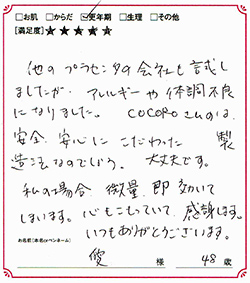 □お肌 □からだ ☑更年期 □生理 □その他
[満足度]★★★★★
他のプラセンタの会社も試し
ましたが、アレルギーや体調不良
になりました。COCOROさんのは、
安全、安心にこだわった製
造法なのでしょう。大丈夫です。
私の場合、微量、即効いて
しまいます。心もこもっていて、感謝します。
いつもありがとうございます。
お名前(本名orペンネーム)
愛 様 48 歳